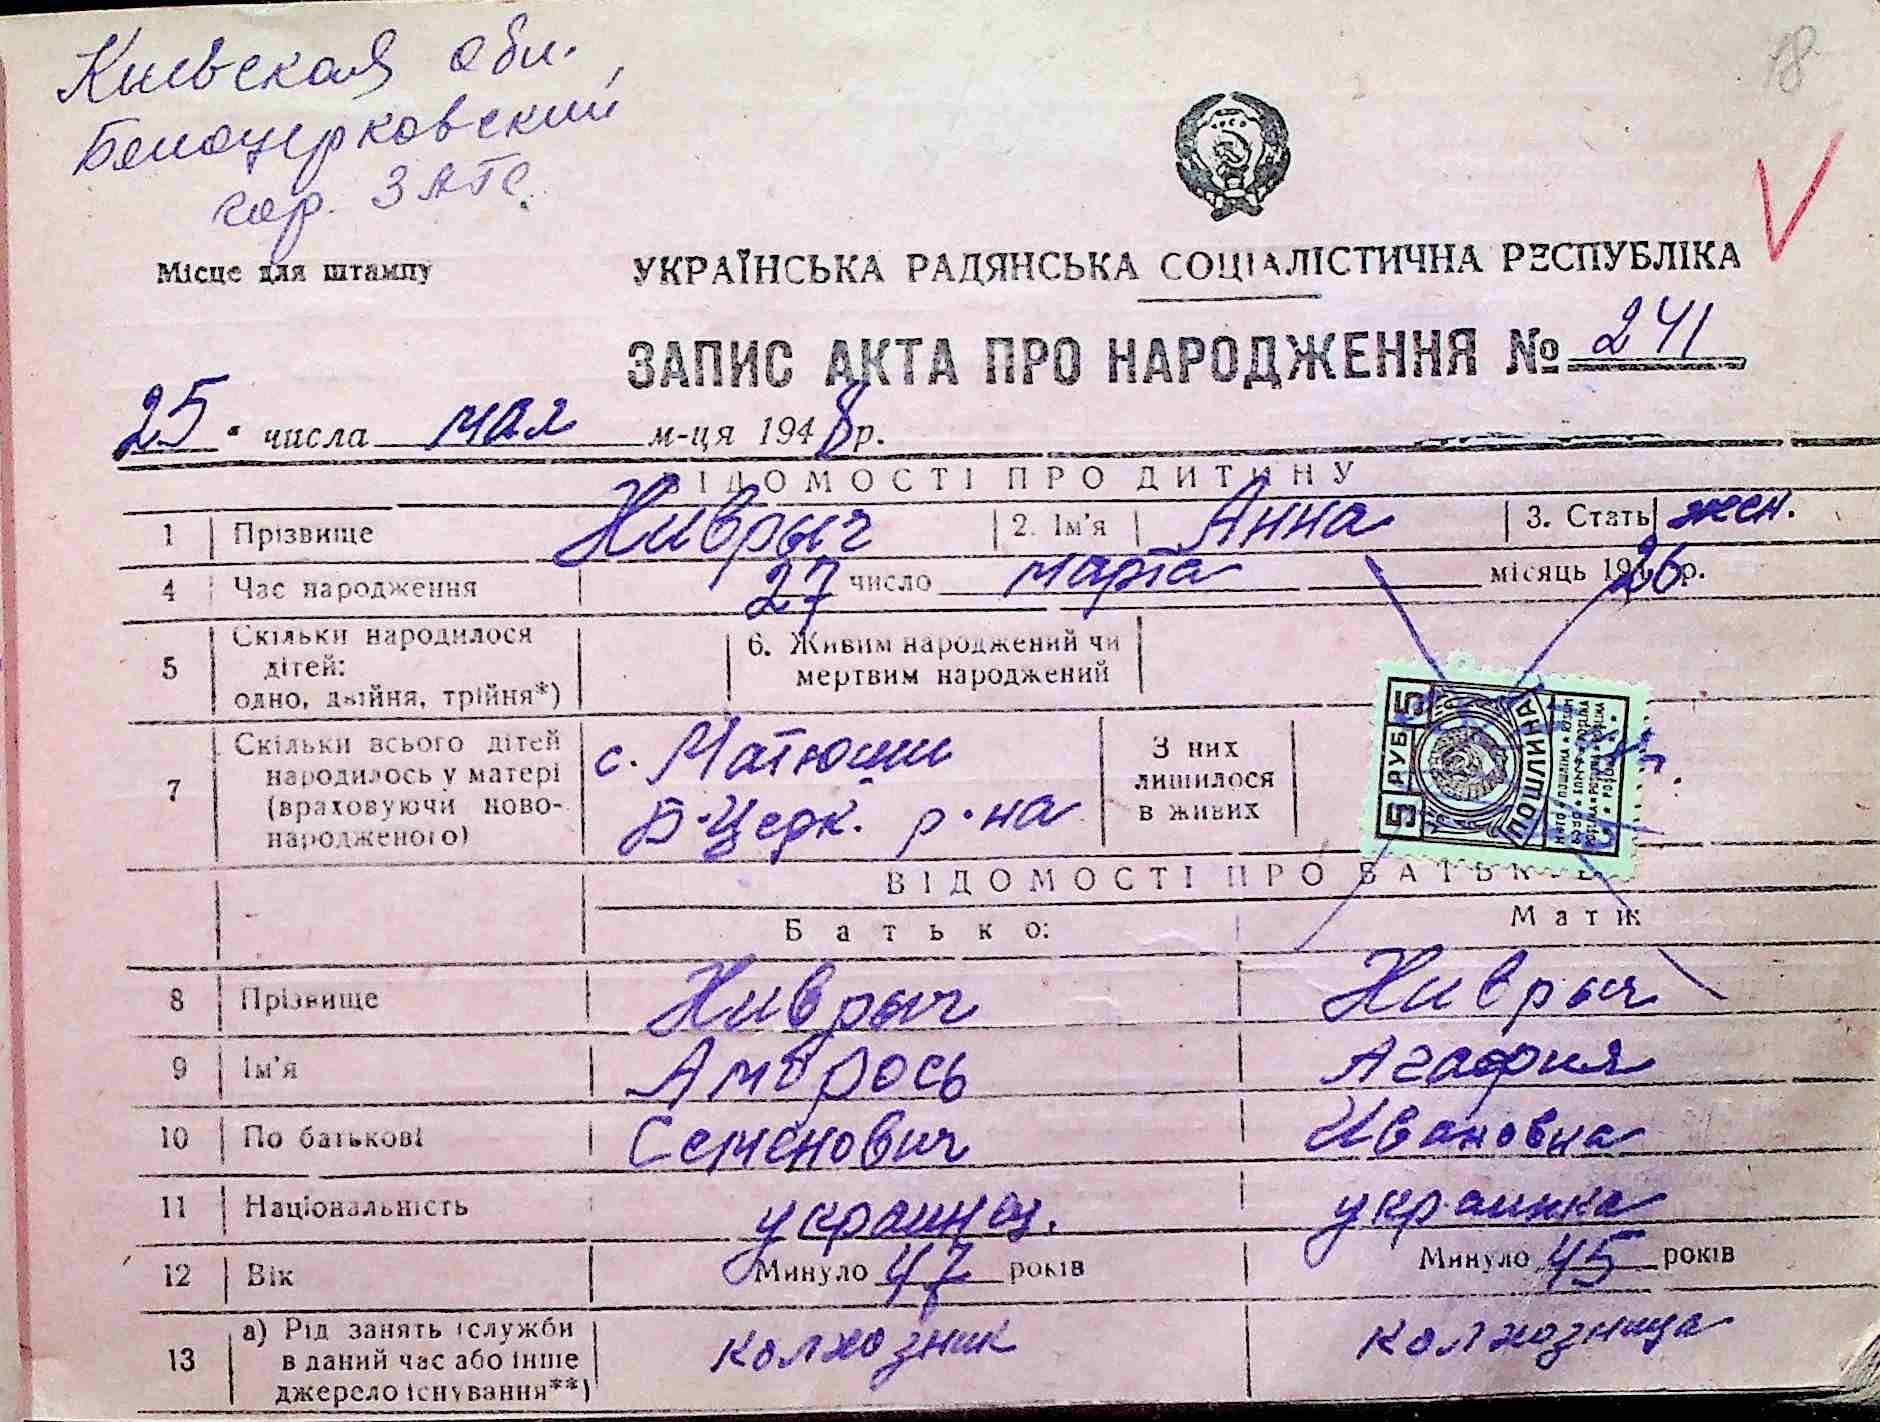 18
Киевская обл.
Белоцерковский
гор. ЗАГС.
Місце для штампу
УКРАЇНСЬКА РАДЯНСЬКА СОЦІАЛІСТИЧНА РЕСПУБЛІКА
ЗАПИС АКТА ПРО НАРОДЖЕННЯ № 241
25 числа мая м-ця 1948 р.
ВІДОМОСТІ ПРО ДИТИНУ
1 Прізвище Ниврыч 2. Ім'я Анна 3. Стать жен.
4 Час народження 27 число марта місяць 1926 р.
5 Скільки народилося дітей: одно, двійня, трійня*) 6. Живим народжений чи мертвим народжений
7 Скільки всього дітей народилось у матері (враховуючи новонародженого) с. Матюши Б-Церк. р-на З них лишилося в живих
5 РУБ 5
ПОШЛИНА
ВІДОМОСТІ ПРО БАТЬКІВ
Батько: Мати:
8 Прізвище Ниврыч Ниврыч
9 Ім'я Амврось Агафия
10 По батькові Семенович Ивановна
11 Національність украинец. украинка
12 Вік Минуло 47 років Минуло 45 років
13 а) Рід занять (служби в даний час або інше джерело існування**) колхозник колхозница